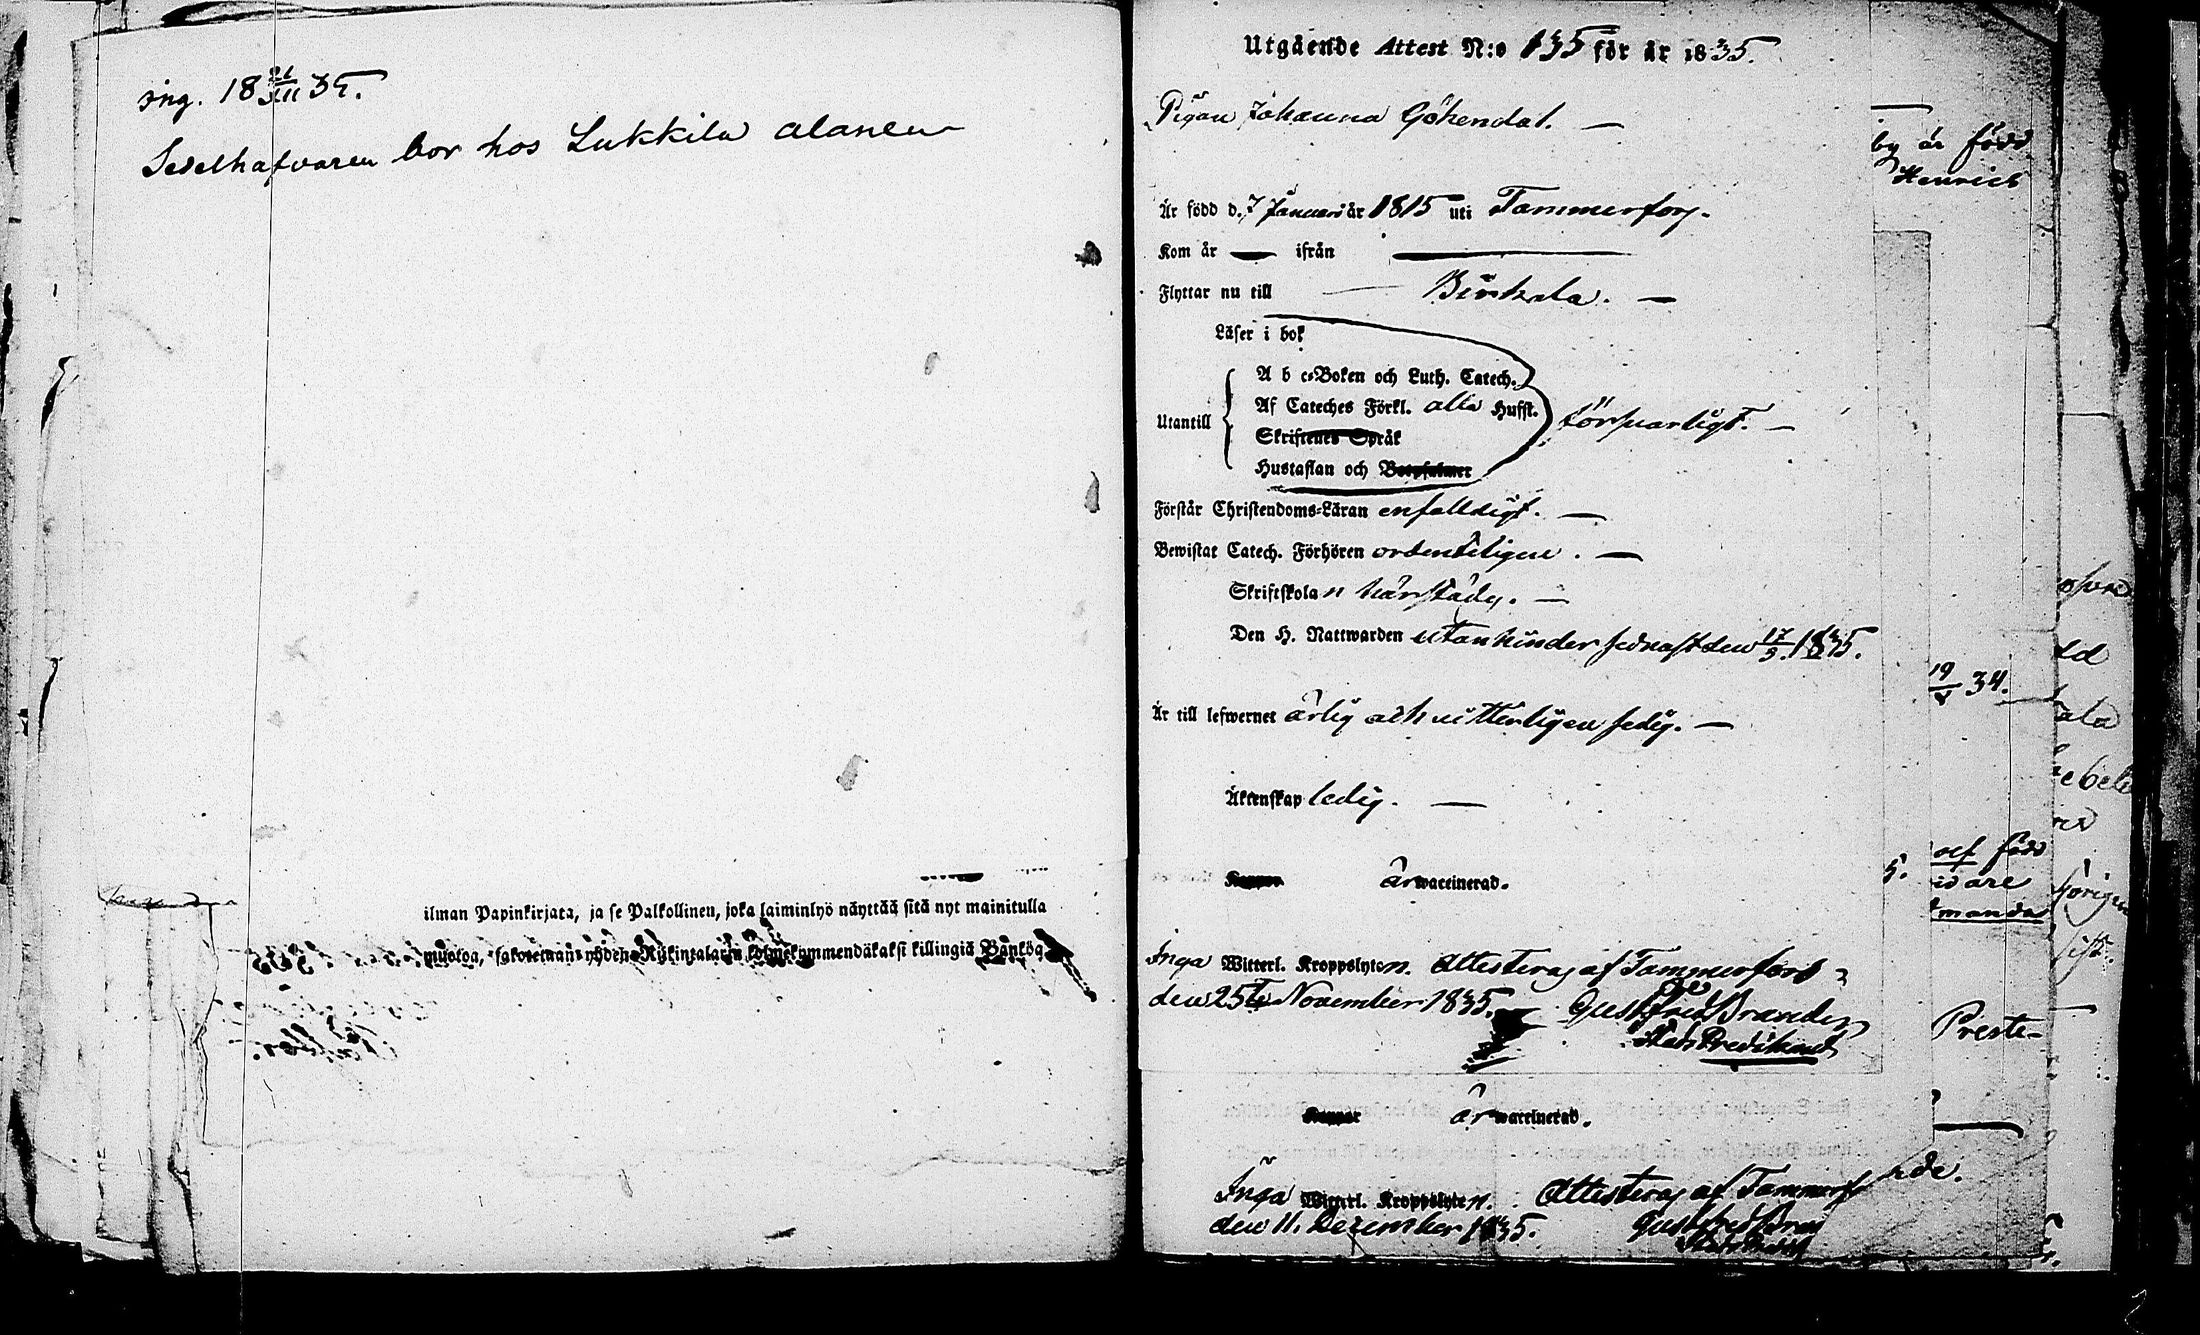 ing. 18 21/XII 35.
Sedelhafvaren bor hos Lukkila alanen
ilman Papinkirjata, ja se Palkollinen, joka laiminlyö näyttää sitä nyt mainitulla
muotoa, sakotetaan yhden Riikintalarin kolmekymmendäkaksi killingiä Bankos
Utgående Attest N:o 135 för år 1835.
Pigan Johanna Gökendal. —
Är född d. 7 Januari år 1815 uti Tammerfors.
Kom år — ifrån —
Flyttar nu till — Birkala. —
Läser i bok
A b c-Boken och Luth. Catech.
Af Cateches Förkl. alla Hufst.
Utantill försvarligt. —
Skriftenes Språk
Hustaflan och Botpsalmer
Förstår Christendoms-Läran enfalldigt. —
Bewistat Catech. Förhören ordentligen. —
Skriftskolan härstädes. —
Den H. Nattwarden utan hinder sednast den 17/5 1835.
Är till lefwernet ärlig och vitterligen sedig. —
Äktenskap ledig. —
Koppor är waccinerad.
Inga Witterl. Kroppslyten. Attesteras af Tammerfors
den 25te November 1835. Gust. Fred. Brander
Stads Predikant
Koppor är waccinerad.
Inga Witterl. Kroppslyten. Attesteras af Tammerf
den 11. December 1835. Gust Fred Bran
by är född
Henrics
19/V 34.
5.
född
idare
mandas
Preste-
rde.
ala